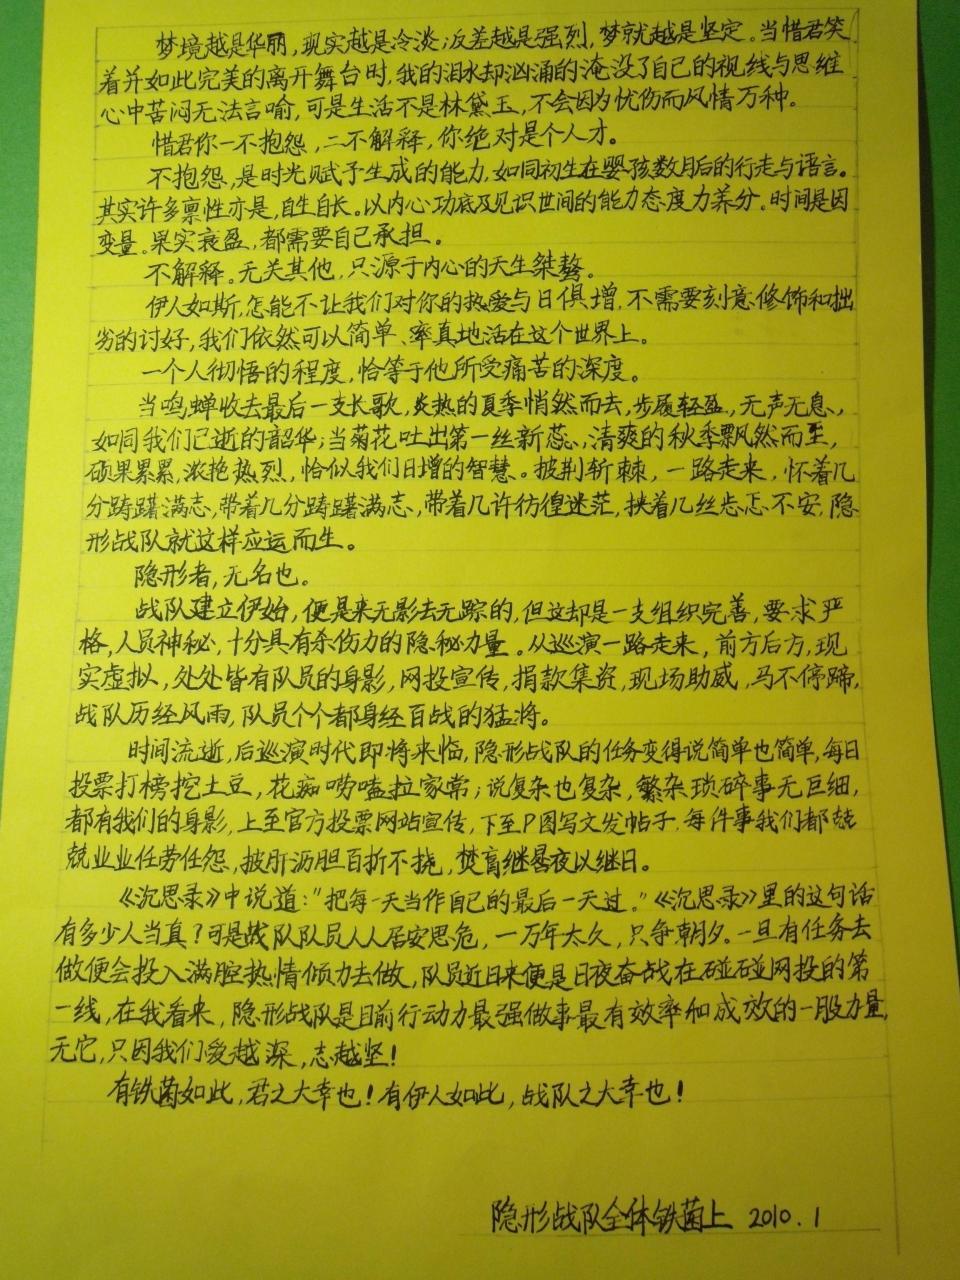 梦境越是华丽,现实越是冷淡;反差越是强烈,梦就越是坚定。当惜君笑
着并如此完美的离开舞台时,我的泪水却汹涌的淹没了自己的视线与思维
心中苦闷无法言喻,可是生活不是林黛玉,不会因为忧伤而风情万种。
惜君你一不抱怨,二不解释,你绝对是个人才。
不抱怨,是时光赋予生成的能力,如同初生在婴孩数月后的行走与语言。
其实许多禀性亦是,自生自长。以内心功底及见识世间的能力态度力养分。时间是因
变量。果实衰盈,都需要自己承担。
不解释。无关其他,只源于内心的天生桀骜。
伊人如斯,怎能不让我们对你的热爱与日俱增,不需要刻意修饰和拙
劣的讨好,我们依然可以简单、率真地活在这个世界上。
一个人彻悟的程度,恰等于他所受痛苦的深度。
当鸣蝉收去最后一支长歌,炎热的夏季悄然而去,步履轻盈,无声无息,
如同我们已逝的韶华;当菊花吐出第一丝新蕊,清爽的秋季飘然而至,
硕果累累,浓艳热烈,恰似我们日增的智慧。披荆斩棘,一路走来,怀着几
分踌躇满志,带着几分踌躇满志,带着几许彷徨迷茫,挟着几丝忐忑不安,隐
形战队就这样应运而生。
隐形者,无名也。
战队建立伊始,便是来无影去无踪的,但这却是一支组织完善,要求严
格,人员神秘,十分具有杀伤力的隐秘力量。从巡演一路走来,前方后方,现
实虚拟,处处皆有队员的身影,网投宣传,捐款集资,现场助威,马不停蹄,
战队历经风雨,队员个个都身经百战的猛将。
时间流逝,后巡演时代即将来临,隐形战队的任务变得说简单也简单,每日
投票打榜挖土豆,花痴唠嗑拉家常;说复杂也复杂,繁杂琐碎事无巨细,
都有我们的身影,上至官方投票网站宣传,下至P图写文发帖子,每件事我们都兢
兢业业任劳任怨,披肝沥胆百折不挠,焚膏继晷夜以继日。
《沉思录》中说道:"把每一天当作自己的最后一天过。"《沉思录》里的这句话
有多少人当真?可是战队队员人人居安思危,一万年太久,只争朝夕。一旦有任务去
做便会投入满腔热情倾力去做,队员近日来便是日夜奋战在碰碰网投的第
一线,在我看来,隐形战队是目前行动力最强做事最有效率和成效的一股力量,
无它,只因我们爱越深,志越坚!
有铁菌如此,君之大幸也!有伊人如此,战队之大幸也!
隐形战队全体铁菌上 2010.1